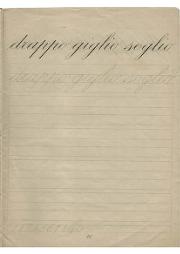 drappo giglio soglio
drappo giglio soglio